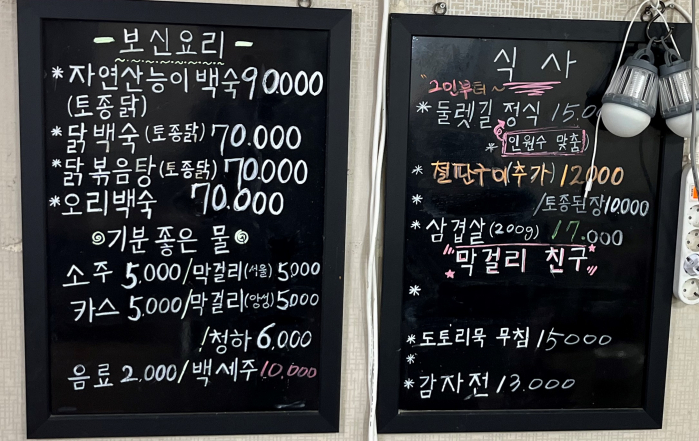 - 보신요리 -
* 자연산능이백숙 90.000
(토종닭)
* 닭백숙 (토종닭) 70.000
* 닭볶음탕 (토종닭) 70.000
* 오리백숙 70.000
기분 좋은 물
소주 5.000/막걸리(서울) 5000
카스 5.000/막걸리(안성) 5.000
/청하 6.000
음료 2.000/백세주 10.000
식사
"2인부터~
* 둘렛길 정식 15.0
* 인원수 맞춤)
* 철판구이(추가) 12000
* /토종된장 10.000
* 삼겹살 (200g) 17.000
"막걸리 친구"
*
* 도토리묵 무침 15000
*
* 감자전 13.000